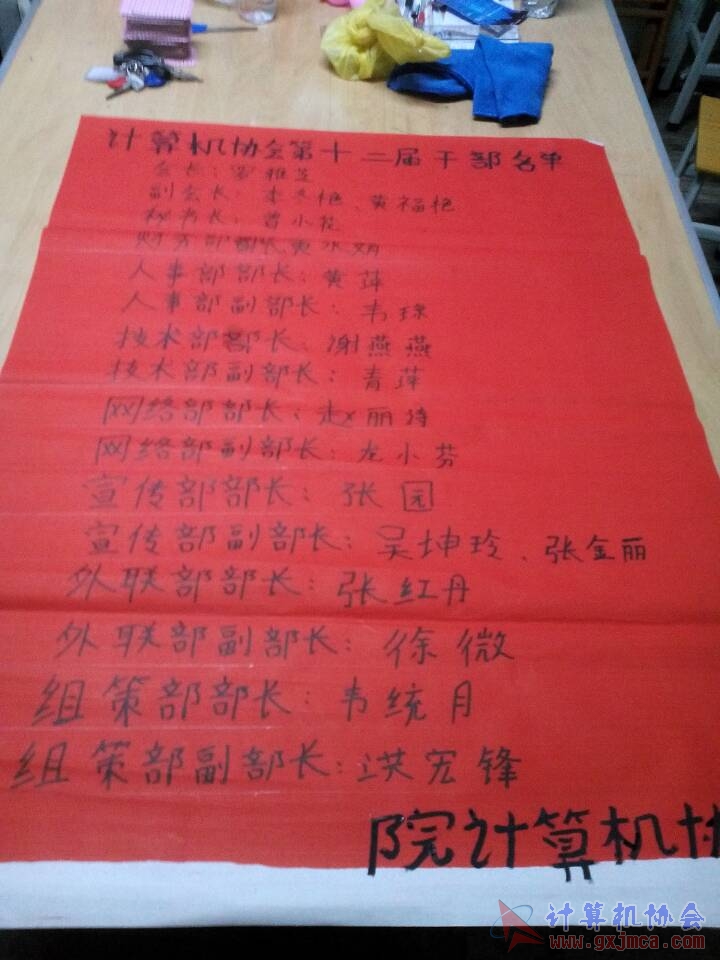 计算机协会第十二届干部名单
会长：雅芝
副会长：李冬艳、黄福艳
秘书长：曾小花
财务部部长：黄水娟
人事部部长：黄萍
人事部副部长：韦琼
技术部部长：谢燕燕
技术部副部长：青萍
网络部部长：赵丽诗
网络部副部长：龙小芬
宣传部部长：张园
宣传部副部长：吴坤玲、张金丽
外联部部长：张红丹
外联部副部长：徐微
组策部部长：韦统月
组策部副部长：洪宏锋
院计算机协
计算机协会
www.gxjmca.com